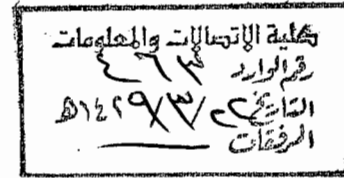 كلية الاتصالات والمعلومات
رقم الوارد ٤٦٣
التاريخ ٢٢/٣/١٤٢٩هـ
المرفقات